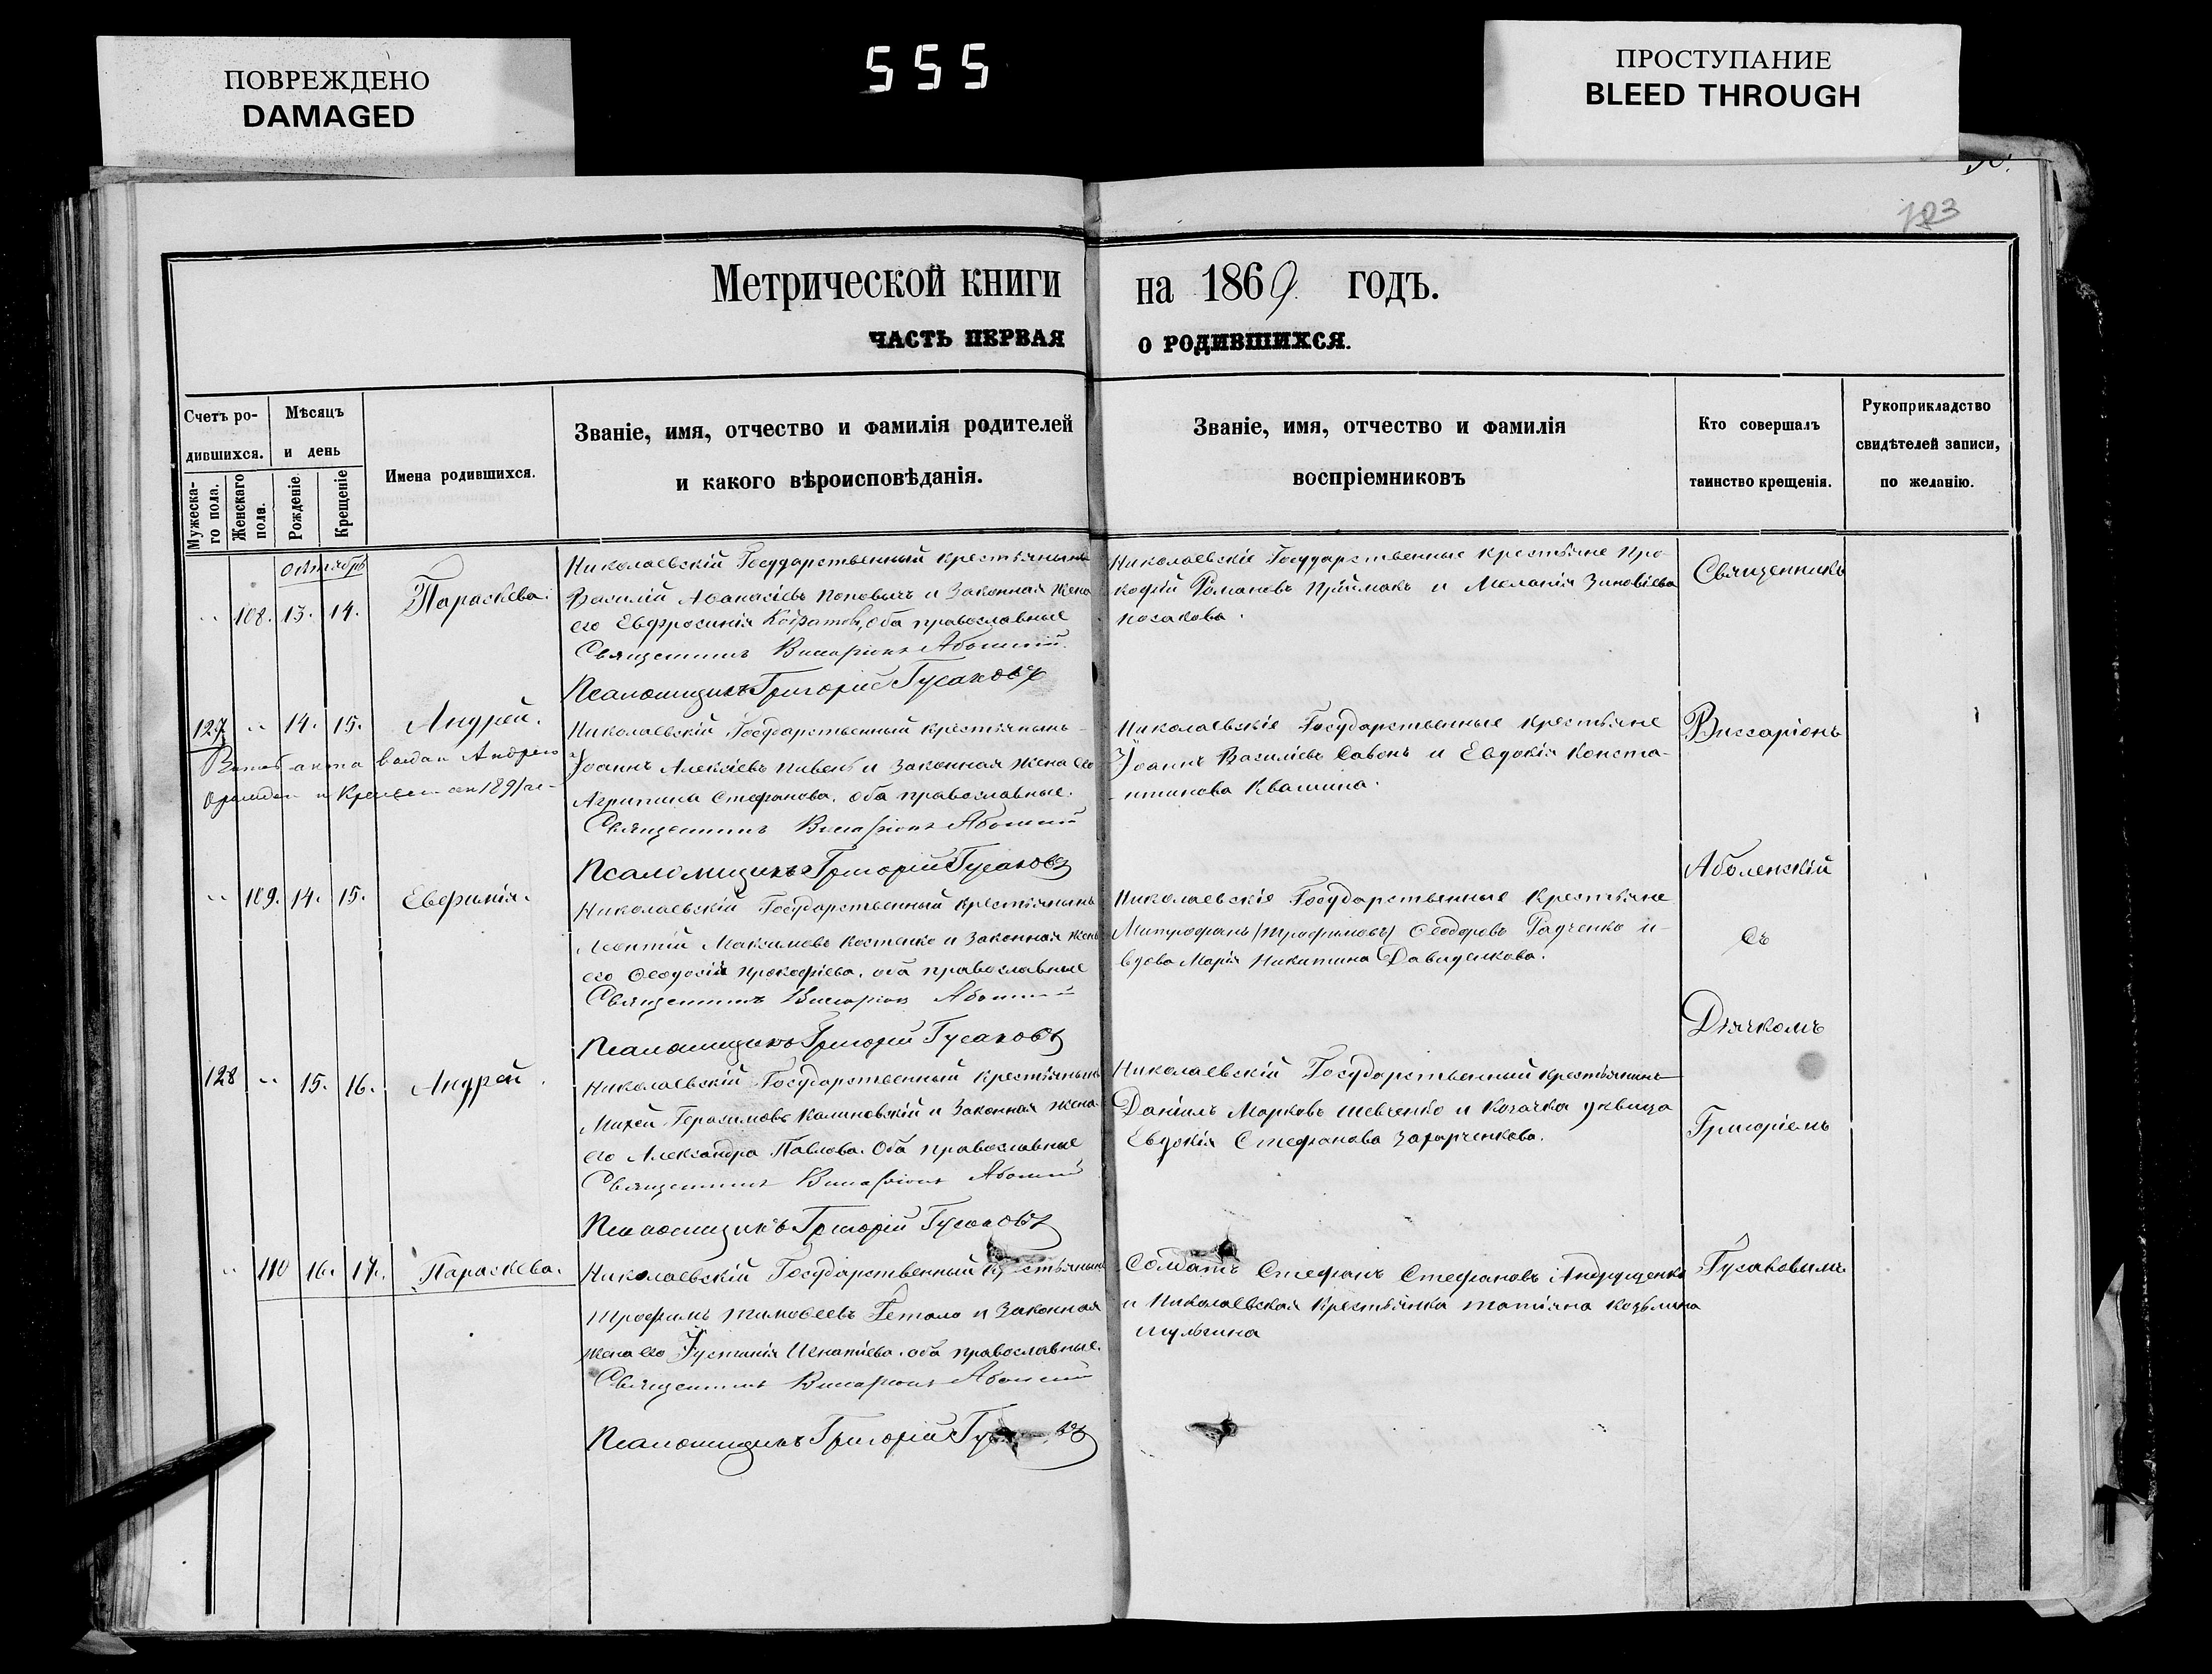 ПОВРЕЖДЕНО
DAMAGED
555
ПРОСТУПАНИЕ
BLEED THROUGH
123
Метрической книги на 1869 годъ.
ЧАСТЬ ПЕРВАЯ О РОДИВШИХСЯ.
Счетъ ро-
дившихся.
Мужеска-
го пола.
Женскаго
пола.
Мѣсяцъ
и день
Рожденіе.
Крещеніе
Имена родившихся.
Званіе, имя, отчество и фамилія родителей
и какого вѣроисповѣданія.
Званіе, имя, отчество и фамилія
воспріемниковъ
Кто совершалъ
таинство крещенія.
Рукоприкладство
свидѣтелей записи,
по желанію.
Октябрь
" 108. 13. 14. Параскева.
Николаевскій Государственный крестьянинъ
Василій Аѳанасіевъ Поповычъ и Законная жена
его Евфросинія, оба православные
Священникъ Виссаріонъ
Псаломщикъ Григорій Гусаковъ
Николаевскіе Государственные крестьяне Про-
кофій Романовъ Приймакъ и Меланія Зиновіева
Козакова.
127 " 14. 15. Андрей.
Николаевскій Государственный крестьянинъ
Іоаннъ Алексіевъ Пивень и Законная жена его
Агрипина Стефанова. оба православные.
Священникъ Виссаріонъ
Псаломщикъ Григорій Гусаковъ
Николаевскіе Государственные крестьяне
Іоаннъ Василіевъ Савонъ и Евдокія Конста-
нтинова Квашина.
" 109. 14. 15. Евфимія.
Николаевскій Государственный крестьянинъ
Леонтій Максимовъ Костенко и Законная жена
его Ѳеодосія Прокофіева. оба православные
Священникъ Виссаріонъ
Псаломщикъ Григорій Гусаковъ
Николаевскіе Государственные крестьяне
Митрофанъ (Трофимовъ) Ѳеодоровъ Радченко и
вдова Марія Никитина Давиденкова.
128 " 15. 16. Андрей.
Николаевскій Государственный крестьянинъ
Михей Герасимовъ Калиновскій и Законная жена
его Александра Павлова. Оба православные
Священникъ Виссаріонъ
Псаломщикъ Григорій Гусаковъ
Николаевскій Государственный крестьянинъ
Даніилъ Марковъ Шевченко и Козачка
Евдокія Стефанова Захарченкова.
" 110 16. 17. Параскева.
Николаевскій Государственный
Трофимъ Тимоѳеевъ Гетало и Законная
жена его Іустинія Игнатіева. оба православные.
Священникъ Виссаріонъ
Псаломщикъ Григорій
Солдатъ Стефанъ Стефановъ Андрущенко
и Николаевская крестьянка Татіана Козьмина
Шульгина
Священникъ
Виссаріонъ
Аболенскій
съ
Дьячкомъ
Григоріемъ
Гусаковымъ